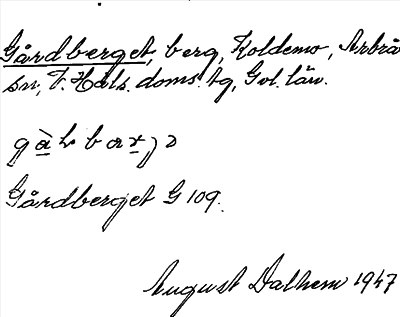 Gårdberget, berg, Koldemo, Arbrå
sn, V. Häls. doms. tg, Gvl. län.
Gårdberget G 109.
August Dalhem 1947